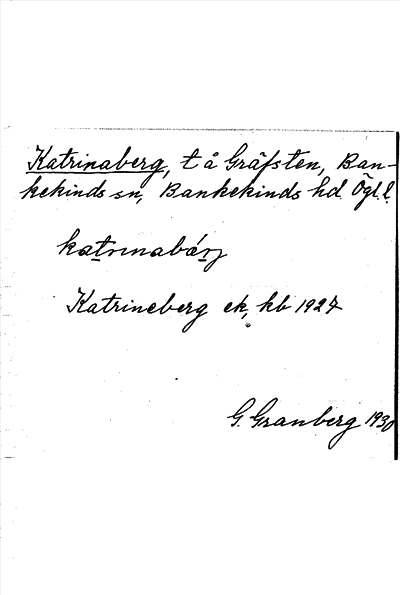 Katrinaberg, t å Gräfsten, Ban-
kekinds sn, Bankekinds hd. Ögl. l.
katrınabárj
Katrineberg ek, kb 1927
G. Granberg 1930